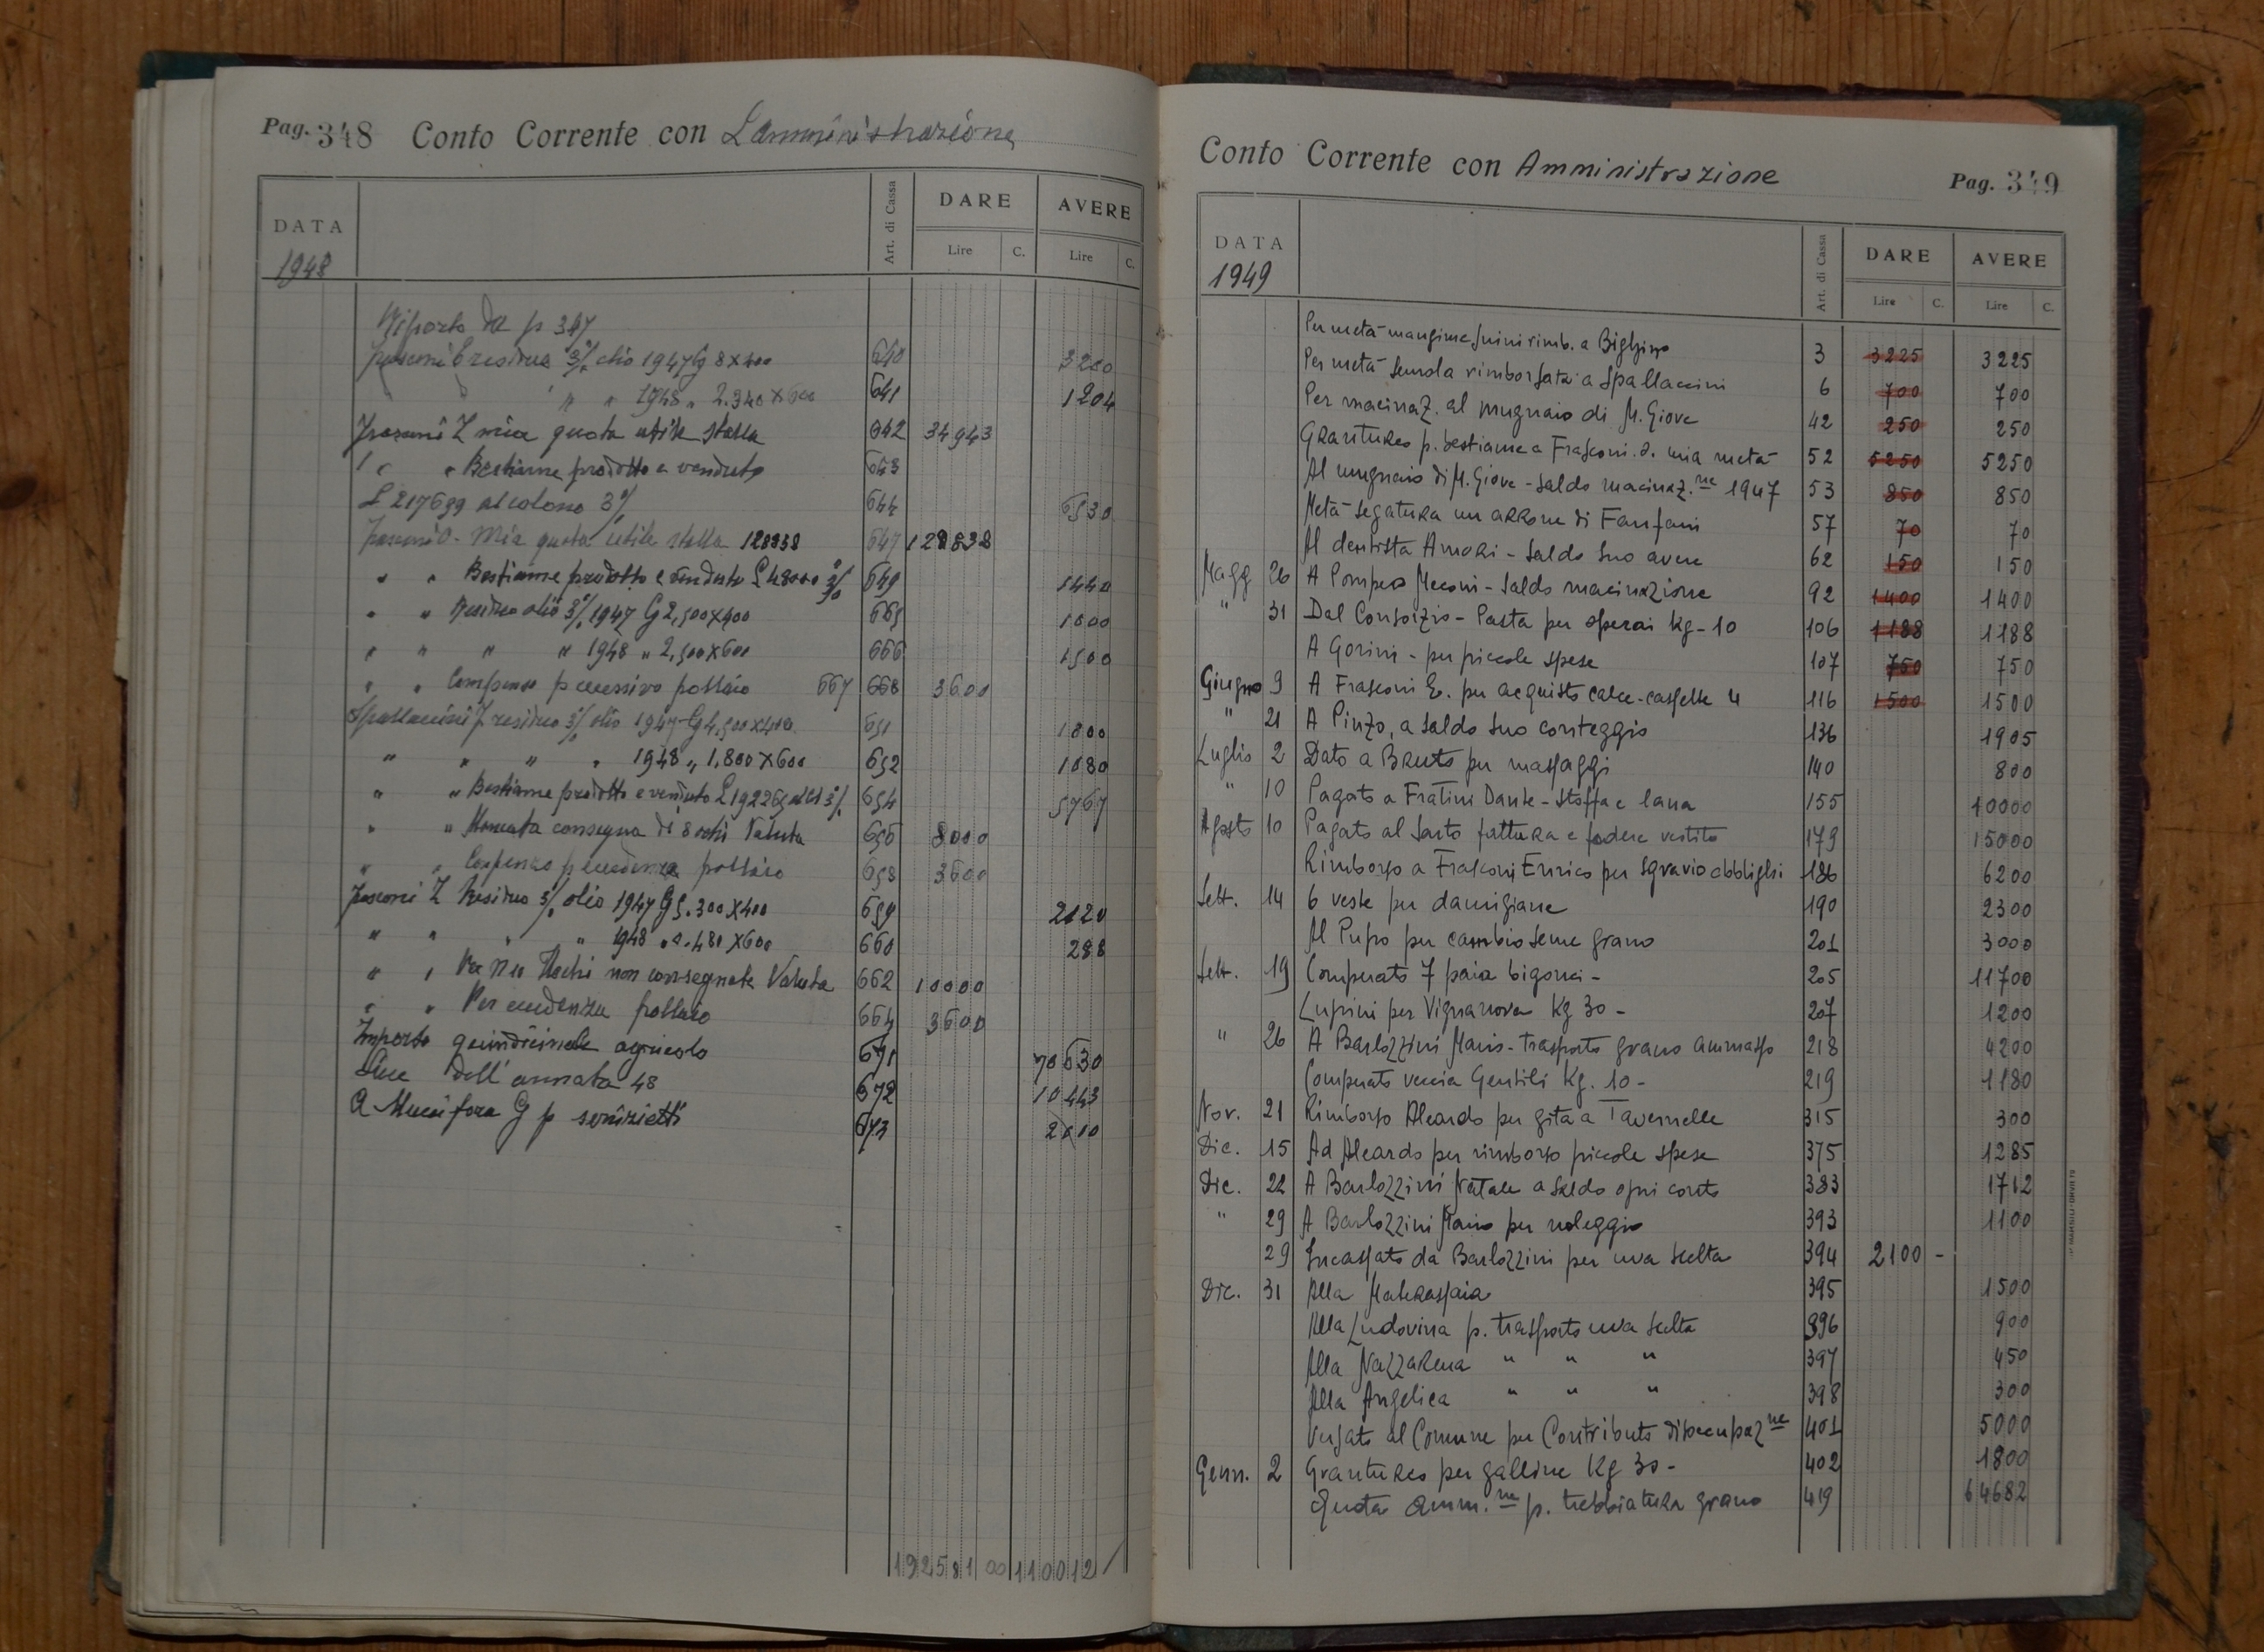 Pag. 348 Conto Corrente con L'amministrazione
DATA Art. di Cassa DARE AVERE
Lire C. Lire C.
1948
Riporto da p 347
residuo 3% olio 1947 Kg 8x400 640 3200
" " 1948 " 2.340x600 641 1204
Frasconi Z mia quota utile stalla 642 34943
" " Bestiame prodotto e venduto 643
L 217699 al colono 3% 644 6530
Frasconi O. Mia quota utile stalla 128838 647 128838
" " Bestiame prodotto e venduto £ 48000 3% 649 1440
" " Residuo olio 3% 1947 Kg 2,500x400 665 1000
" " " " 1948 " 2,500x600 666 1500
" " Compenso p pollaio 667 668 3600
Spallaccini F residuo 3% olio 1947 Kg 4,500x400 651 1800
" " " " 1948 " 1.800x600 652 1080
" " Bestiame prodotto e venduto L 192265 3% 654 5767
" " Mancata consegna di 8 ochi Valuta 656 8000
" " Compenso p eccedenza pollaio 658 3600
Frasconi Z Residuo 3% olio 1947 Kg 5.300x400 659 2120
" " " " 1948 " 0.480x600 660 288
" " Per non consegnate Valuta 662 10000
" " Per eccedenza pollaio 664 3600
Importo quindicinale agricolo 671 70630
Luce dell'annata 48 672 10443
A G p servizietti 673 2010
192581 00 110012
Conto Corrente con Amministrazione Pag. 349
DATA Art. di Cassa DARE AVERE
Lire C. Lire C.
1949
Per metà mangime suini rimb. a Bighino 3 3225 3225
Per metà semola rimborsata a Spallaccini 6 700 700
Per macinaz. al mugnaio di M. Giove 42 250 250
Granturco p. bestiame a Frasconi O. mia metà 52 5250 5250
Al mugnaio di M. Giove - saldo macinaz.ne 1947 53 850 850
Metà segatura un arrone di Fanfani 57 70 70
Al dentista Amori - saldo suo avere 62 150 150
Magg 26 A Pompeo Meconi - saldo macinazione 92 1400 1400
" 31 Dal Consorzio - Pasta per operai Kg - 10 106 1188 1188
A Gorini - per piccole spese 107 750 750
Giugno 9 A Frasconi E. per acquisto calce - cassette 4 116 1500 1500
" 21 A Pinzo, a saldo suo conteggio 136 1905
Luglio 2 Dato a Bruto per massaggi 140 800
" 10 Pagato a Fratini Dante - stoffa e lana 155 10000
Agosto 10 Pagato al sarto fattura e fodere vestito 179 15000
Rimborso a Frasconi Enrico per sgravio obblighi 186 6200
Sett. 14 6 veste per damigiane 190 2300
Al Pupo per cambio seme grano 201 3000
Sett. 19 Comperato 7 paia bigonci - 205 11700
Lupini per Vignanova Kg 30 - 207 1200
" 26 A Barlozzini Mario - trasporto grano ammasso 218 4200
Comperato veccia Gentili Kg. 10 - 219 1180
Nov. 21 Rimborso Aleardo per gita a Tavernelle 315 300
Dic. 15 Ad Aleardo per rimborso piccole spese 375 1285
Dic. 22 A Barlozzini Natale a saldo ogni conto 383 1712
" 29 A Barlozzini Mario per noleggio 393 1100
29 Incassato da Barlozzini per uva scelta 394 2100 -
Dic. 31 Alla Materassaia 395 1500
Alla Ludovina p. trasporto uva scelta 396 900
Alla Nazzarena " " " 397 450
Alla Angelica " " " 398 300
Versato al Comune per Contributo disoccupaz.ne 401 5000
Genn. 2 Granturco per galline Kg 30 - 402 1800
Quota Amm.ne p. trebbiatura grano 419 64682